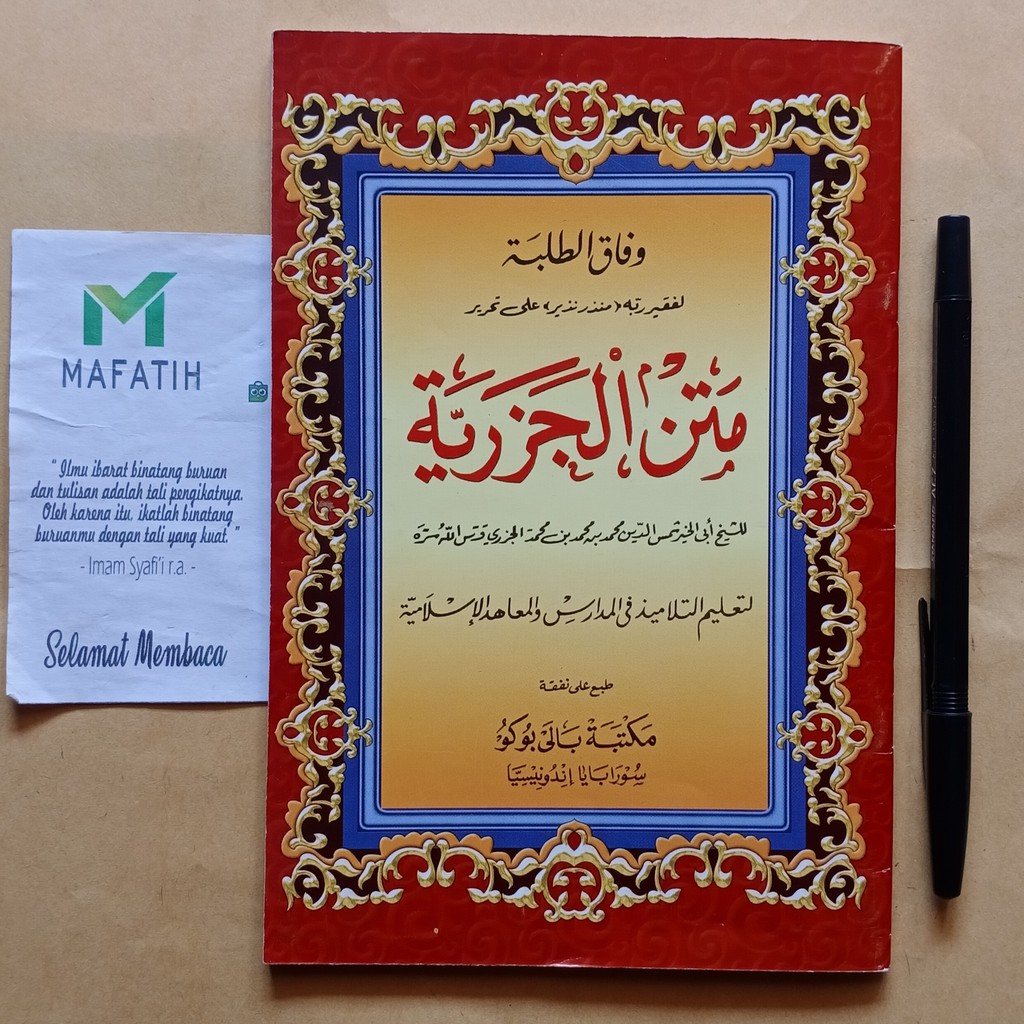 MAFATIH
" Ilmu ibarat binatang buruan
dan tulisan adalah tali pengikatnya.
Oleh karena itu, ikatlah binatang
buruanmu dengan tali yang kuat. "
- Imam Syafi'i r.a. -
Selamat Membaca
وفاق الطلبة
لفقير ربه (منذر نذير) على تحرير
مَتن الْجَزَرِيَّة
للشيخ أبى الخير شمس الدين محمد بن محمد بن محمد الجزري قدس الله سره
لتعليم التلاميذ فى المدارس والمعاهد الإسلامية
طبع على نفقة
مَكْتَبَة بَالَى بُوكُوْ
سُوْرَابَايَا إِنْدُونِيْسِيَّا